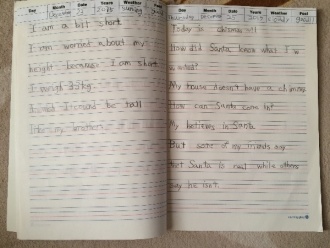 Day Month Date Years Weather Feel
December Sunday good
I am a bit short
I am worand about my
height because I am short
I weigh 35kg.
I want to be tall
like my brothers.
Day Month Date Years Weather Feel
December good
Today is chismas!!
How did Santa know what I
wanted?
My house doesn't have a chimney
How can Santa come in?
My believe in Santa.
But some of my friends say
that Santa is real while others
say he isn't.